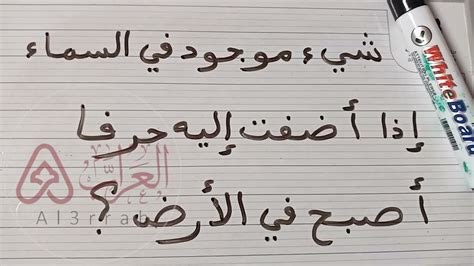 شيء موجود في السماء
إذا أضفت إليه حرفا
أصبح في الأرض ؟
العراب
Al3rrab
WhiteBoard